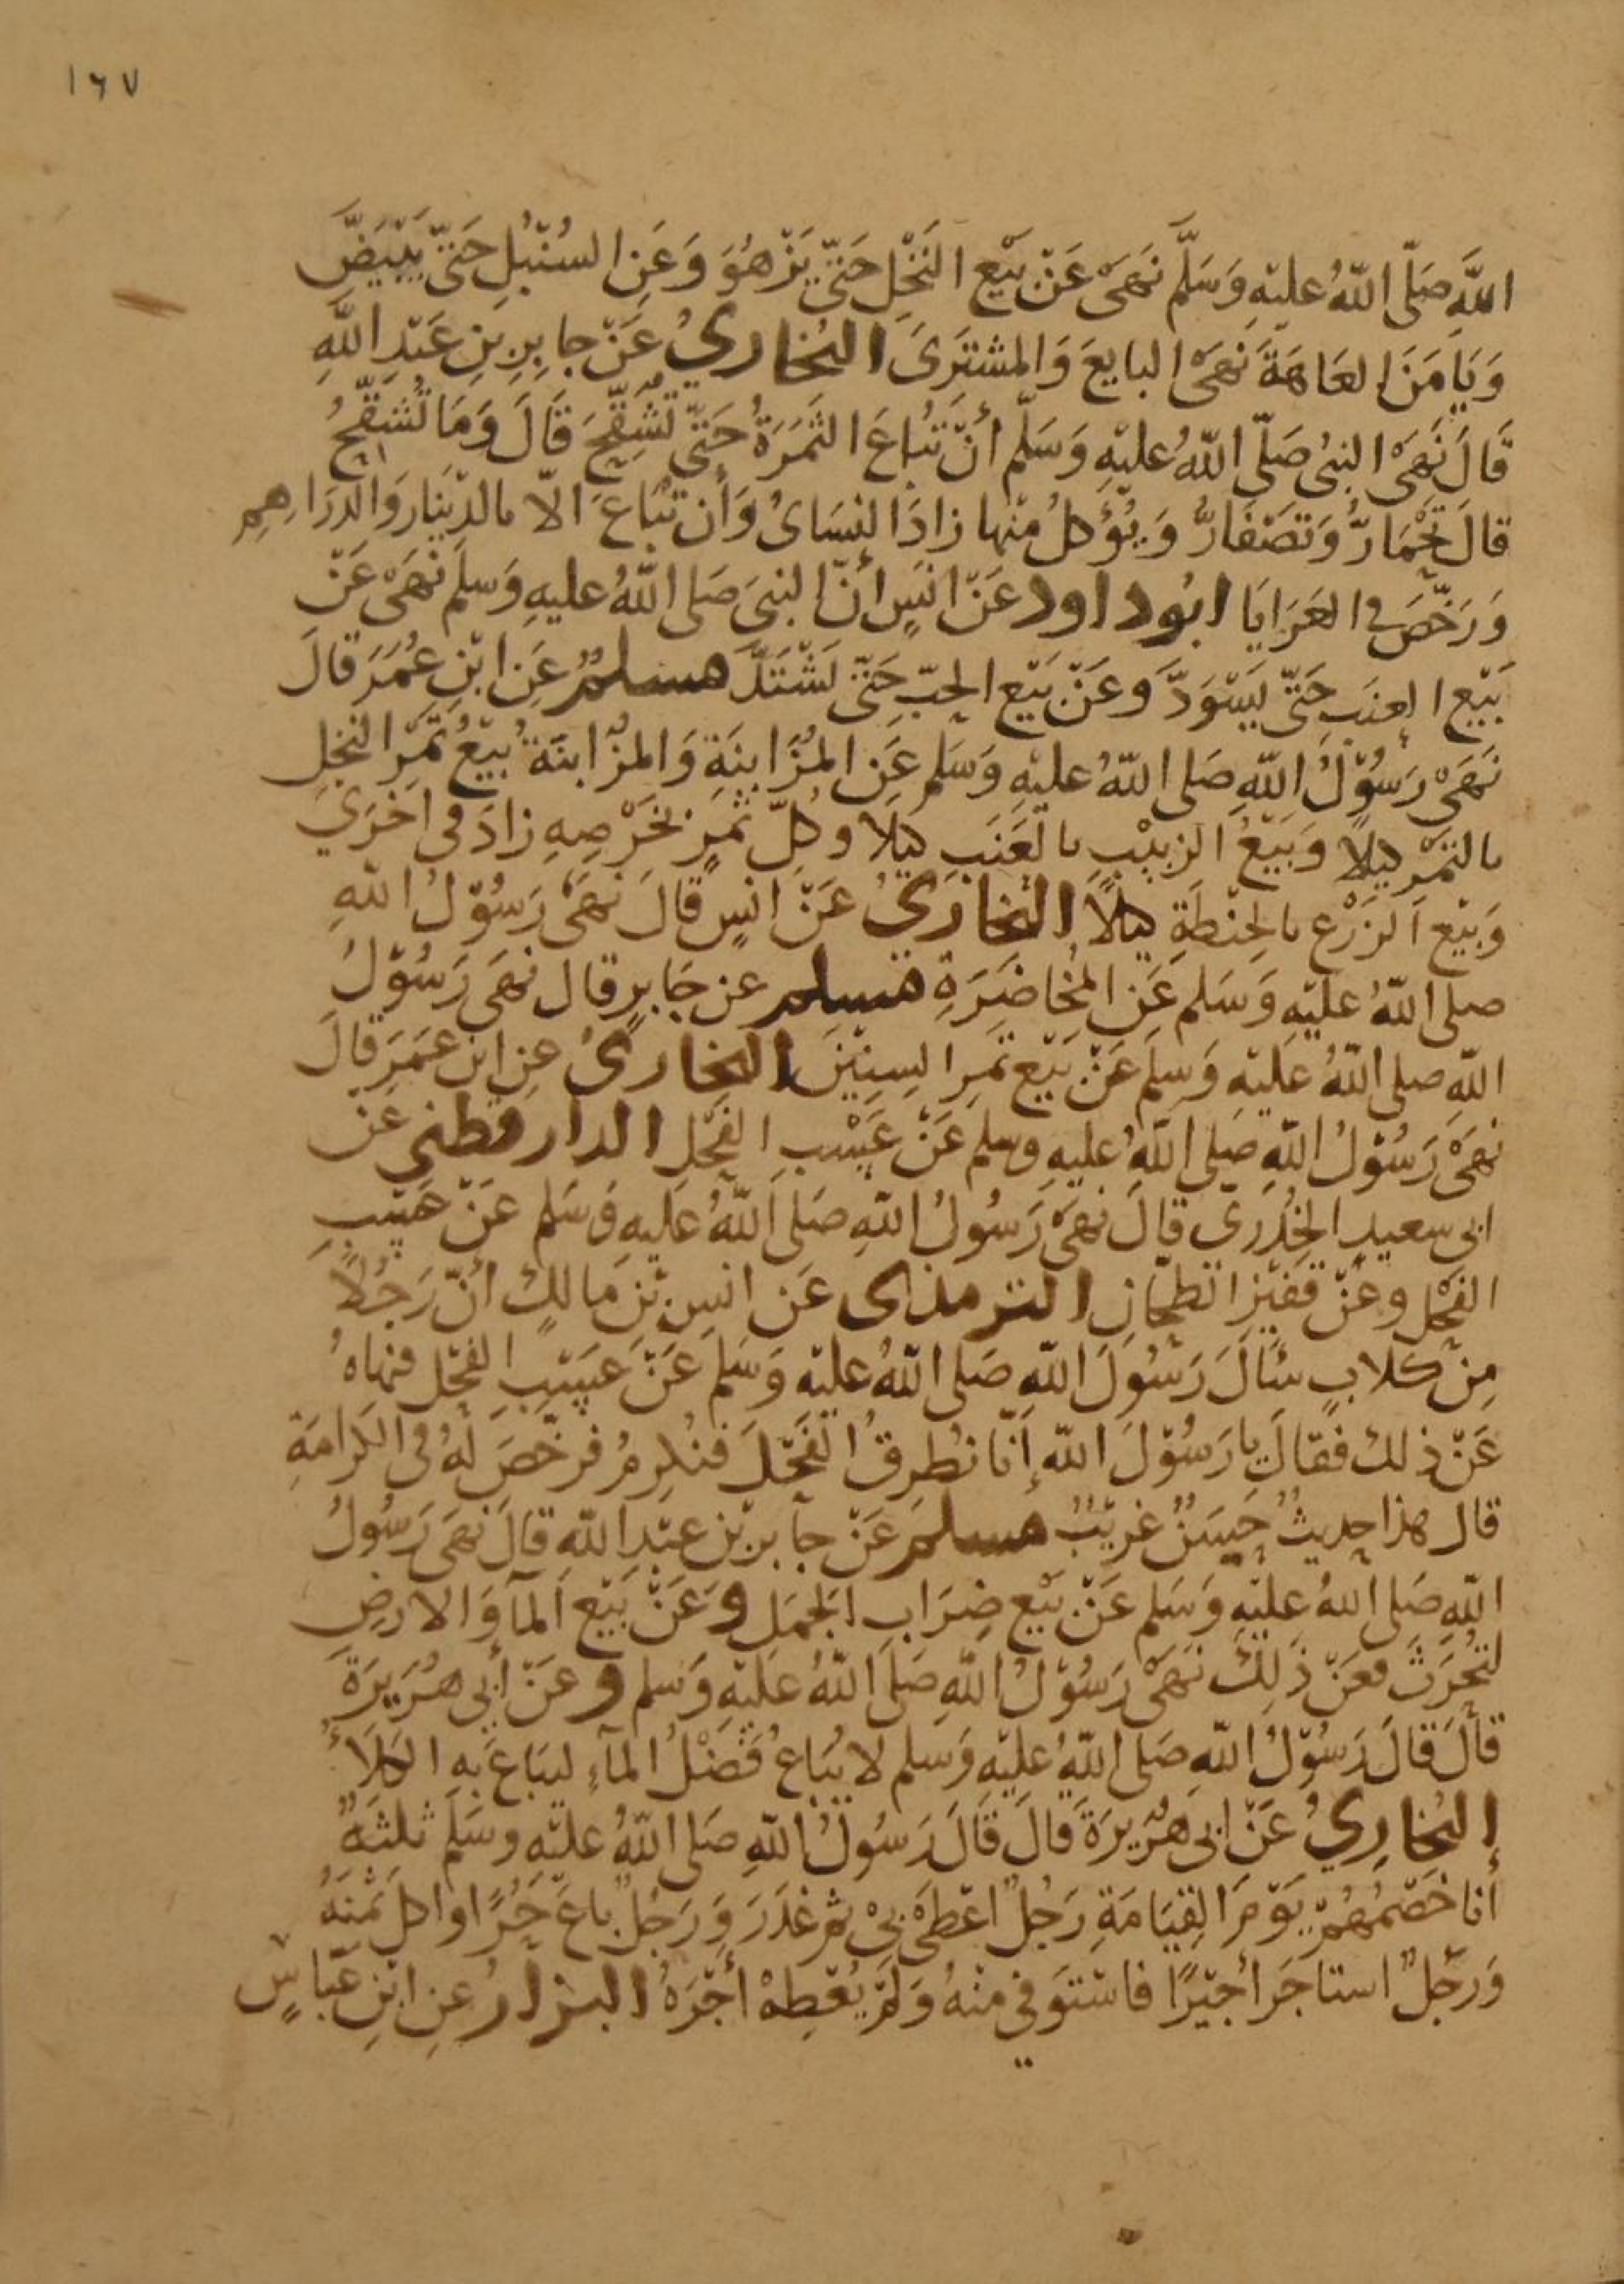 ١٦٧
اللَّهِ صَلّى اللّهُ عليْهِ وَسَلَّم نَهَى عَنْ بَيْع النَخْلِ حَتىّ يَزْهُوَ وَعَنِ السُنْبُلِ حَتىّ يَبْيَضَّ
وَيَأمَنَ العَاهَةَ نَهَى البايعَ وَالمشتَرَى البُخاريُ عَنْ جابِرِ بنِ عَبْدِ اللّهِ
قَالَ نَهَى النبىُ صَلّى اللّهُ عليْهِ وَسَلَّم أنْ تُباعَ الثَمَرَةُ حَتىّ تُشَقِّحَ قَالَ وَمَا تُشَقِّحُ
قالَ تَحْمَارُّ وَتَصْفَارُّ وَيُؤكلُ منْها زادَ النسَاىُ وَأن تُبَاعَ الّا بالدِّينَار وَالدرَاهِمِ
وَرَخّصَ فى العَرَايَا ابُو داود عَنْ انَسٍ أنّ النبىَ صَلى اللّهُ عليهِ وَسلّم نَهَى عَنْ
بَيْع العِنَبِ حَتىّ يَسْوَدَّ وعَنْ بَيْع الحبِّ حَتىّ يَشْتَدَّ مسلمٌ عَنِ ابْنِ عُمَرَ قالَ
نَهَى رَسُوْلُ اللّهِ صَلى اللّهُ عليْهِ وَسَلم عَنِ المُزَابنَةِ وَالمزَابنَةُ بَيْعُ ثَمَرِ النخلِ
بالتَمْرِ كيْلًا وَبَيْعُ الزبِيْبِ بالعِنَبِ كيْلًا وكلّ ثمَرٍ بخَرْصِهِ زادَ فى اخْرَى
وَبَيْع الزَرْع بالحِنْطَةِ كيلًا البُخاريُ عَنْ انسٍ قالَ نَهَى رَسُوْلُ اللّهِ
صلى اللّهُ عليْهِ وَسَلم عَنِ المُخَاضَرَةِ مسلم عن جَابرٍ قال نَهَى رَسُوْلُ
اللّهِ صلى اللّهُ عَليْهِ وَسلم عَنْ بَيْع ثمَرِ السِنِيْنَ البُخارىُ عنِ ابْنِ عمَرَ قالَ
نَهَى رَسُوْلُ اللّهِ صَلى اللّهُ عليهِ وسلم عَنْ عَسْبِ الفَحْلِ الدار قطنى عَنْ
ابى سعيدٍ الخُدْرَي قالَ نَهَى رَسُولُ اللّهِ صَلى اللّهُ عليهِ وَسَلم عَنْ عَسْبِ
الفَحْلِ وعَنْ قَفِيْزِ الطحّانِ الترمذى عَن انسِ بْنِ مَالكٍ أنّ رَجُلًا
مِنْ كلابٍ سَألَ رَسُولَ اللّهِ صَلى اللّهُ عليْهِ وَسَلم عَنْ عَسْبِ الفَحْلِ فنهاهُ
عَنْ ذلك فقالَ يا رَسُوْلَ اللّه إنّا نُطرِقُ الفَحْلَ فنُكرِمُ فرخّصَ لَهُ فى الكَرامَةِ
قال هذا حديثٌ حَسَنٌ غريْبٌ مسلم عَنْ جابرِ بْنِ عَبْدِ اللّهِ قالَ نَهَى رَسُولُ
اللّهِ صَلى اللّهُ عليْهِ وَسَلم عَنْ بَيْع ضِرَابِ الجَمَلِ وعَنْ بَيْع المآ وَالارضِ
لتُحْرَثَ فعَنْ ذَلِكَ نَهَى رَسُوْلُ اللّهِ صَلى اللّهُ عليْهِ وَسَلم وعَنْ أبى هُرَيرَةَ
قالَ قَالَ رَسُوْلُ اللّهِ صَلى اللّهُ عليْهِ وَسَلم لا يُبَاعُ فَضْلُ المآءِ ليبَاعَ بهِ الكَلَأُ
البُخارِيُ عَنْ ابى هُرَيرَةَ قَالَ قَالَ رَسُولُ اللّهِ صَلى اللّهُ عليْهِ وسَلم ثلثةٌ
أنا خَصْمُهُمْ يَوْمَ القِيَامَةِ رَجُلٌ اعْطَى بىْ ثم غدَرَ وَرَجُلٌ باعَ حُرًّا واكلَ ثمنَهُ
وَرَجُلٌ استاجَرَ أجيْرًا فاسْتَوَفى منْهُ وَلمْ يُعْطِهْ أجْرَهُ البزارُ عنِ ابْنِ عَبّاسٍ